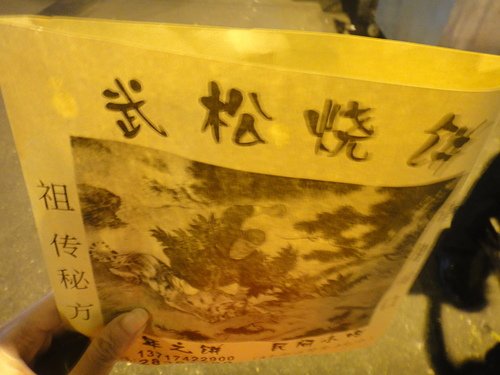 武松烧饼
祖传秘方
年之饼
13717422900
28